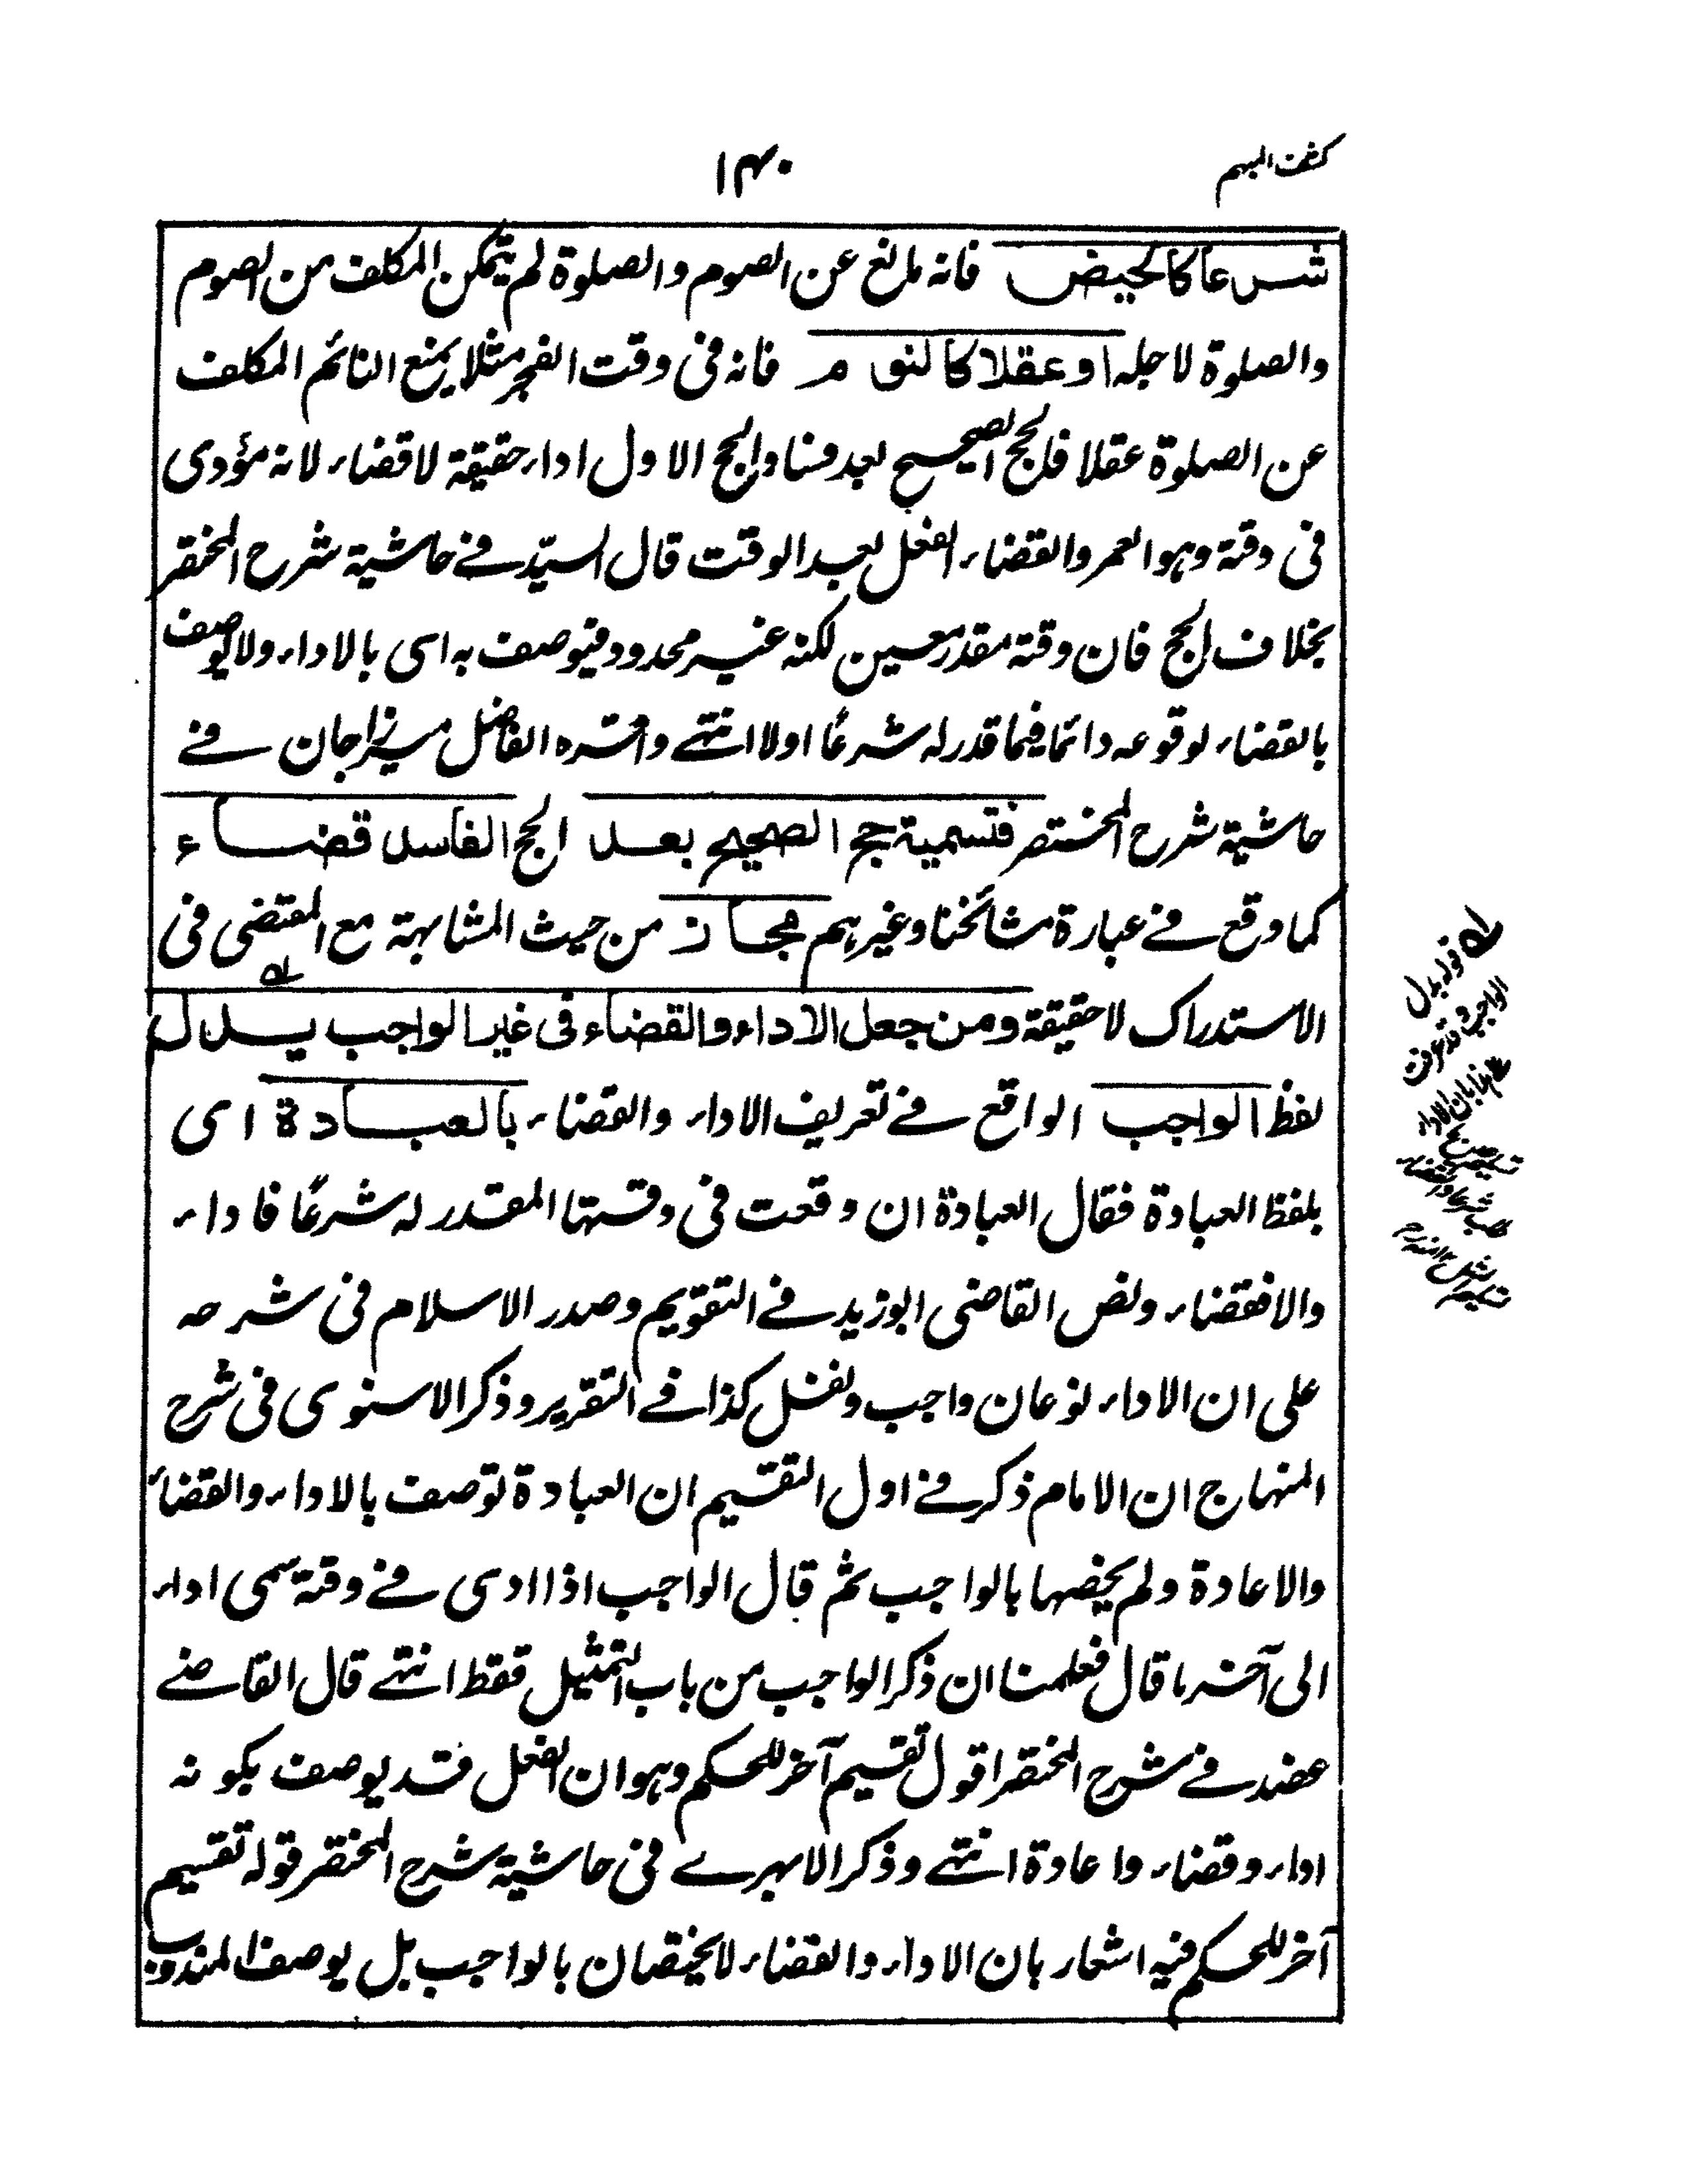 كشف المبهم
١٤٠
شرعا كالحيض فانه مانع عن الصوم والصلوة لم يتمكن المكلف من الصوم
والصلوة لاجله او عقلا كالنوم فانه فى وقت الفجر مثلا يمنع النائم المكلف
عن الصلوة عقلا فالحج الصحيح بعد فساد الحج الاول اداء حقيقة لا قضاء لانه مؤدى
فى وقته وهو العمر والقضاء الفعل بعد الوقت قال السيّد فى حاشية شرح المختصر
بخلاف الحج فان وقته مقدر معين لكنه غير محدود فيوصف به اى بالاداء ولا يوصف
بالقضاء لوقوعه دائما فيما قدر له شرعًا اولا انتهى واقره الفاضل ميرزاجان فى
حاشية شرح المختصر فتسمية حج الصحيح بعد الحج الفاسد قضاء
كما وقع فى عبارة مشائخنا وغيرهم مجاز من حيث المشابهة مع المقتضى فى
الاستدراك لا حقيقة ومن جعل الاداء والقضاء فى غير الواجب يبدل
لفظ الواجب الواقع فى تعريف الاداء والقضاء بالعبادة اى
بلفظ العبادة فقال العبادة ان وقعت فى وقتها المقدر له شرعًا فاداء
والا فقضاء ونص القاضى ابو زيد فى التقويم وصدر الاسلام فى شرحه
على ان الاداء نوعان واجب ونفل كذا فى التقرير وذكر الاسنوى فى شرح
المنهاج ان الامام ذكر فى اول التقسيم ان العبادة توصف بالاداء والقضاء
والاعادة ولم يخصها بالواجب ثم قال الواجب اذا ادى فى وقته سمى اداء
الى آخر ما قال فعلمنا ان ذكر الواجب من باب التمثيل فقط انتهى قال القاضى
عضد فى شرح المختصر اقول تقسيم آخر للحكم وهو ان الفعل قد يوصف بكونه
اداء وقضاء واعادة انتهى وذكر الابهرى فى حاشية شرح المختصر قوله تقسيم
آخر للحكم فيه اشعار بان الاداء والقضاء لا يختصان بالواجب بل يوصف المندوب
قوله يبدل
الواجب وقد عرف